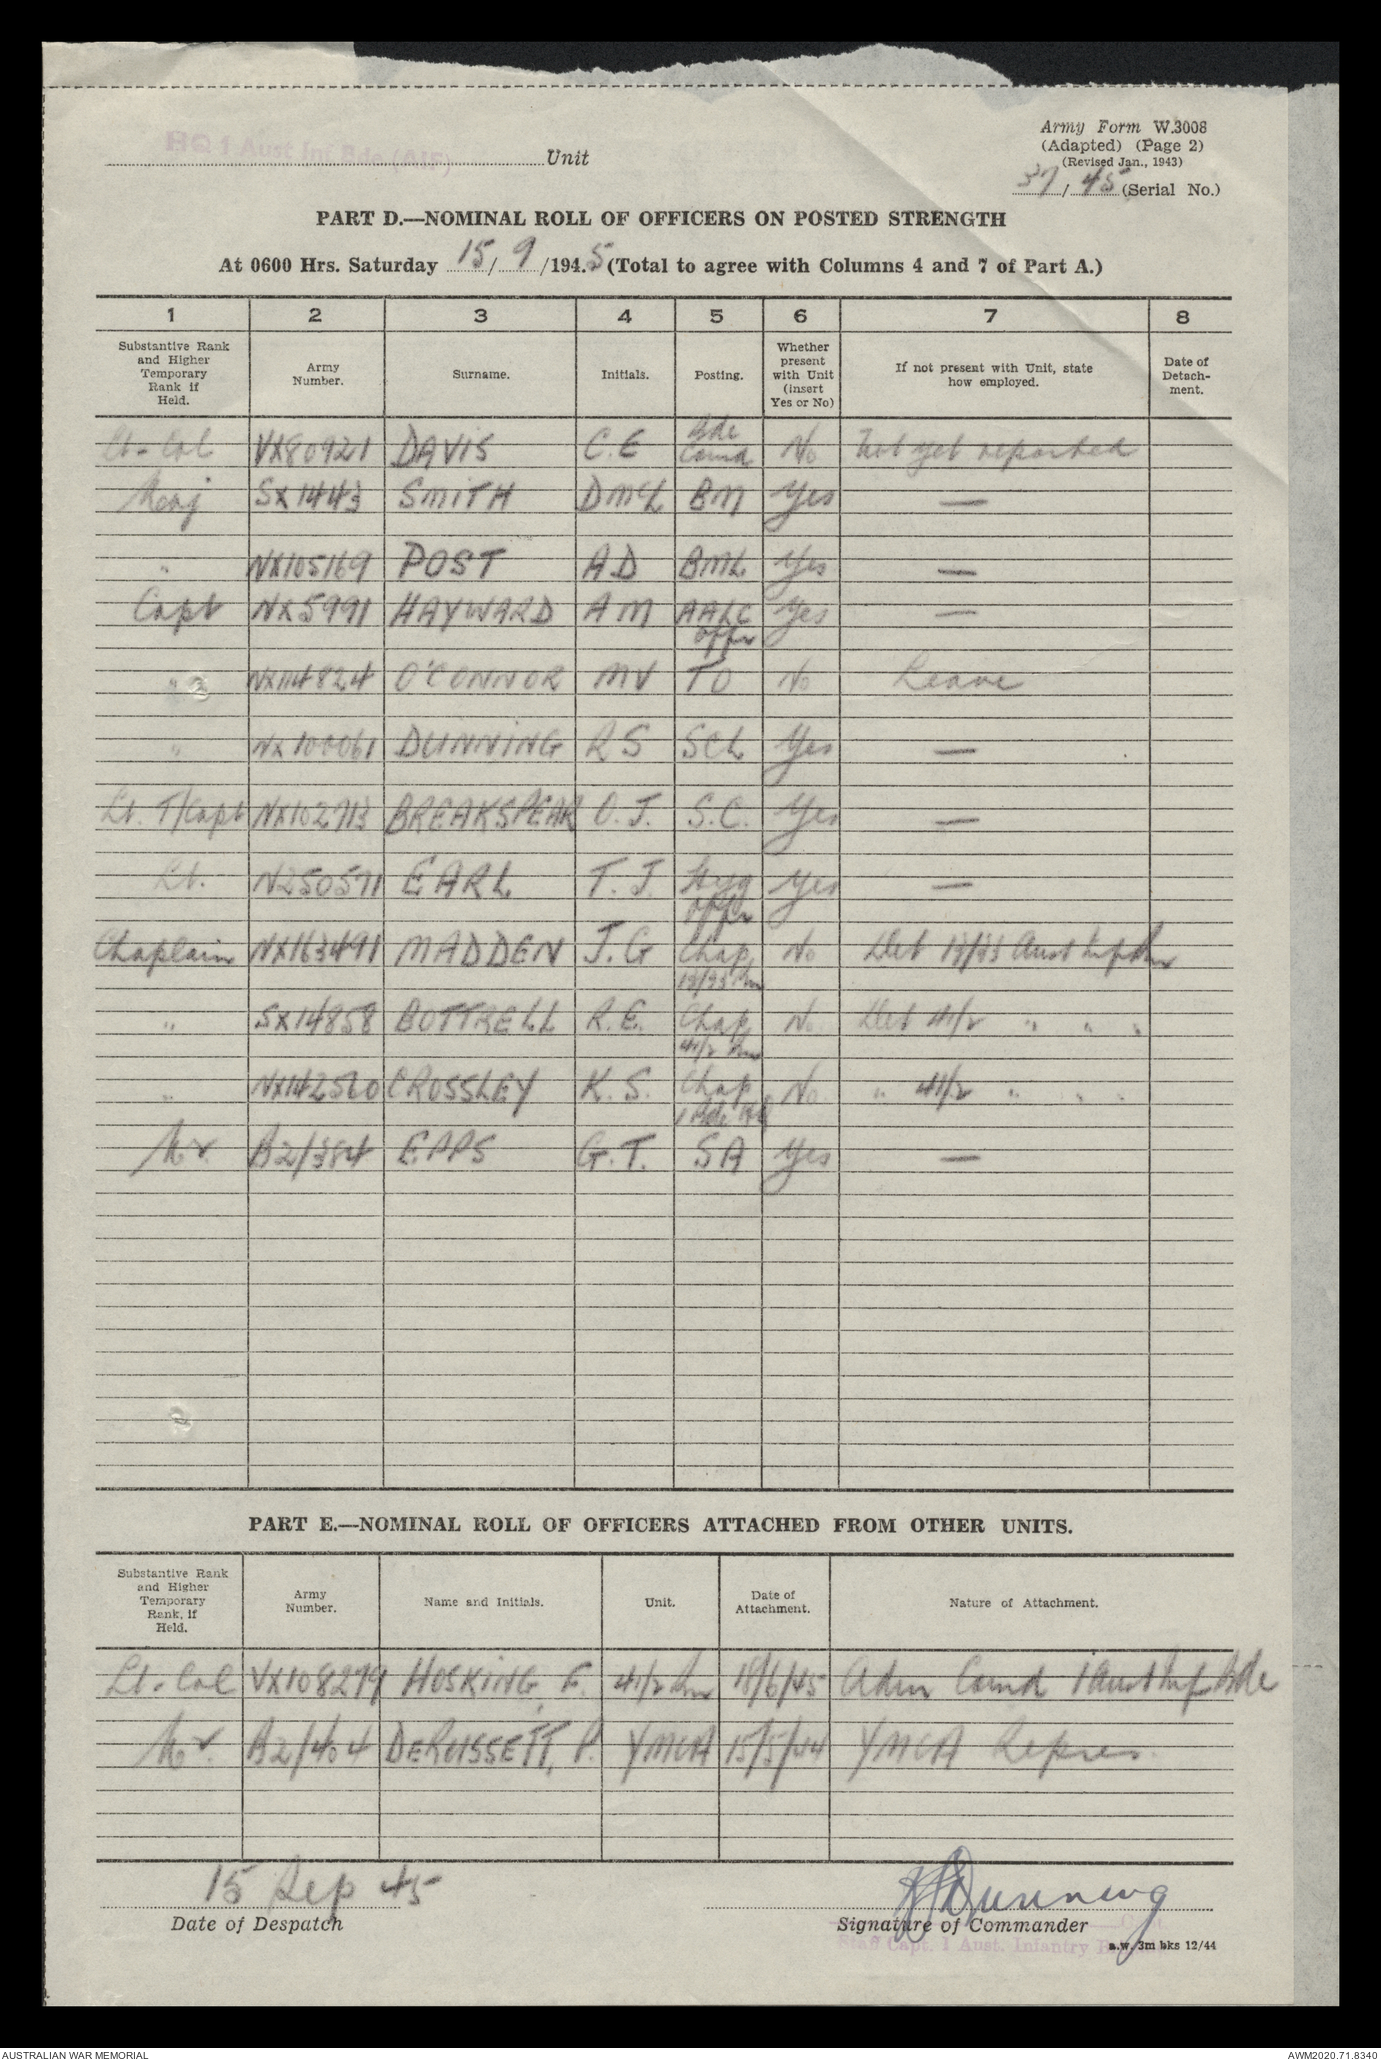 HQ 1 Aust Inf Bde (AIF) Unit
Army Form W.3008
(Adapted) (Page 2)
(Revised Jan., 1943)
37/45 (Serial No.)
PART D.—NOMINAL ROLL OF OFFICERS ON POSTED STRENGTH
At 0600 Hrs. Saturday 15/9/1945 (Total to agree with Columns 4 and 7 of Part A.)
1 2 3 4 5 6 7 8
Substantive Rank and Higher Temporary Rank if Held. Army Number. Surname. Initials. Posting. Whether present with Unit (insert Yes or No) If not present with Unit, state how employed. Date of Detach-ment.
Lt-Col VX80921 DAVIS C.E Bde Comd No Not yet reported
Maj SX1443 SMITH D McL BM Yes —
" NX105169 POST A D BML Yes —
Capt NX5991 HAYWARD A M AALC Offr Yes —
" NX114824 O'CONNOR M V T O No Leave
" NX100061 DUNNING R S SCL Yes —
Lt. T/Capt NX102713 BREAKSPEAR O. J. S.C. Yes —
Lt. N250571 EARL T. J. Hyg Offr Yes —
Chaplain NX163491 MADDEN J. G Chap 13/33 Bn No Det 13/33 Aust Inf Bn
" SX14858 BOTTRELL R. E. Chap 41/2 Bn No Det 41/2 " " "
" NX142560 CROSSLEY K. S. Chap 1 Bde HQ No " 41/2 " " "
Mr. A2/384 EPPS G. T. SA Yes —
PART E.—NOMINAL ROLL OF OFFICERS ATTACHED FROM OTHER UNITS.
Substantive Rank and Higher Temporary Rank, if Held. Army Number. Name and Initials. Unit. Date of Attachment. Nature of Attachment.
Lt-Col VX108279 HOSKING, F. 41/2 Bn 18/6/45 Adm Comd 1 Aust Inf Bde
Mr. A2/404 DERUSSETT, P. YMCA 15/5/44 YMCA Repres.
15 Sep 45
Date of Despatch
RSDunning
Signature of Commander
Staff Capt. 1 Aust. Infantry
a.w. 3m bks 12/44
AUSTRALIAN WAR MEMORIAL
AWM2020.71.8340